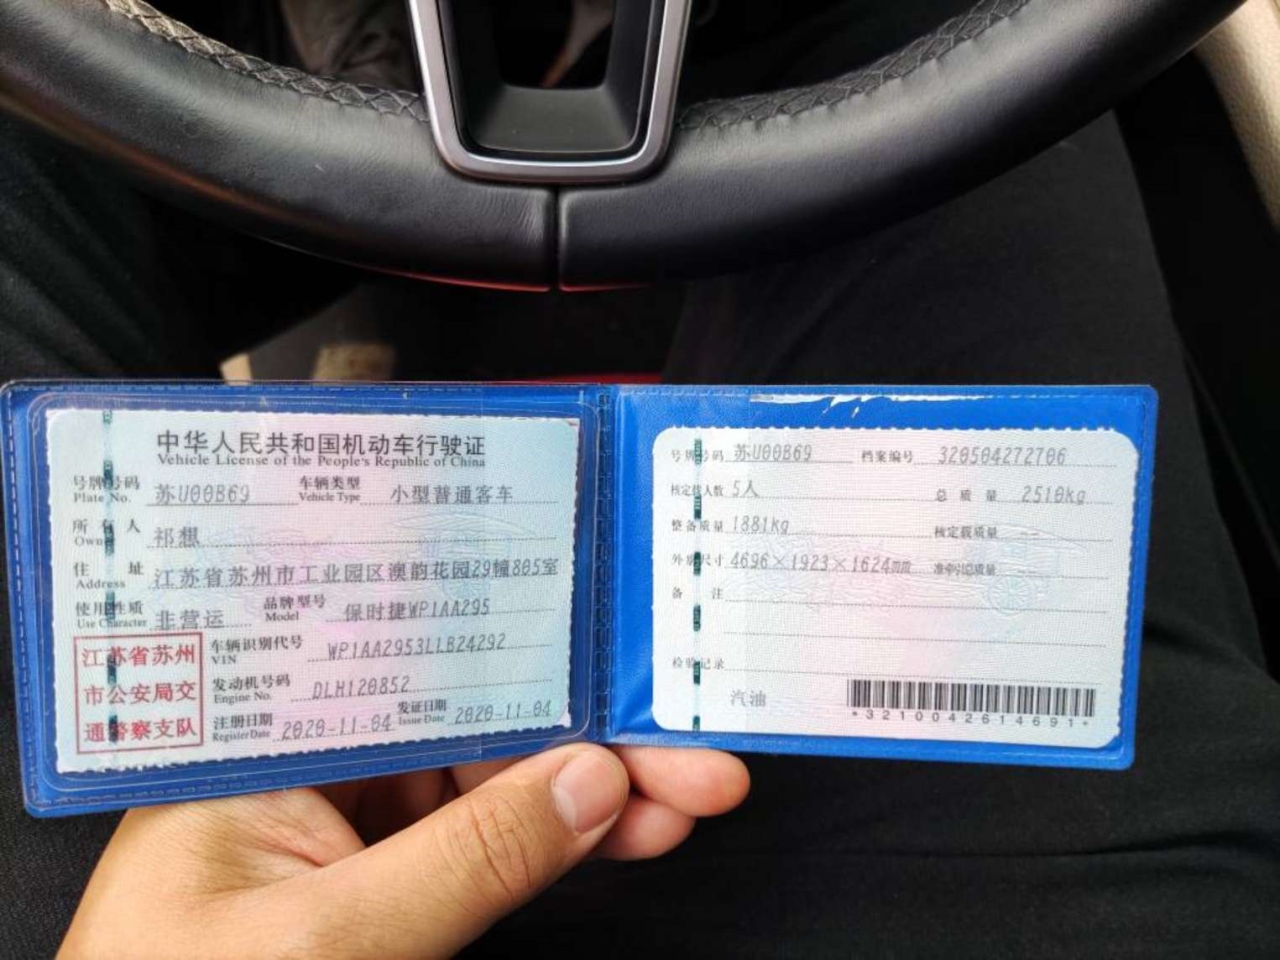 中华人民共和国机动车行驶证
Vehicle License of the People's Republic of China
号牌号码 苏U00B69 车辆类型 小型普通客车
Plate No. Vehicle Type
所有人 祁想
Owner
住址 江苏省苏州市工业园区澳韵花园29幢805室
Address
使用性质 非营运 品牌型号 保时捷WP1AA295
Use Character Model
江苏省苏州
市公安局交
通警察支队
车辆识别代号 WP1AA2953LLB24292
VIN
发动机号码 DLH120852
Engine No.
注册日期 2020-11-04 发证日期 2020-11-04
Register Date Issue Date
号牌号码 苏U00B69 档案编号 320504272706
核定载人数 5人 总质量 2510kg
整备质量 1881kg 核定载质量 --
外廓尺寸 4696×1923×1624mm 准牵引总质量 --
备注
检验记录
汽油
*3210042614691*